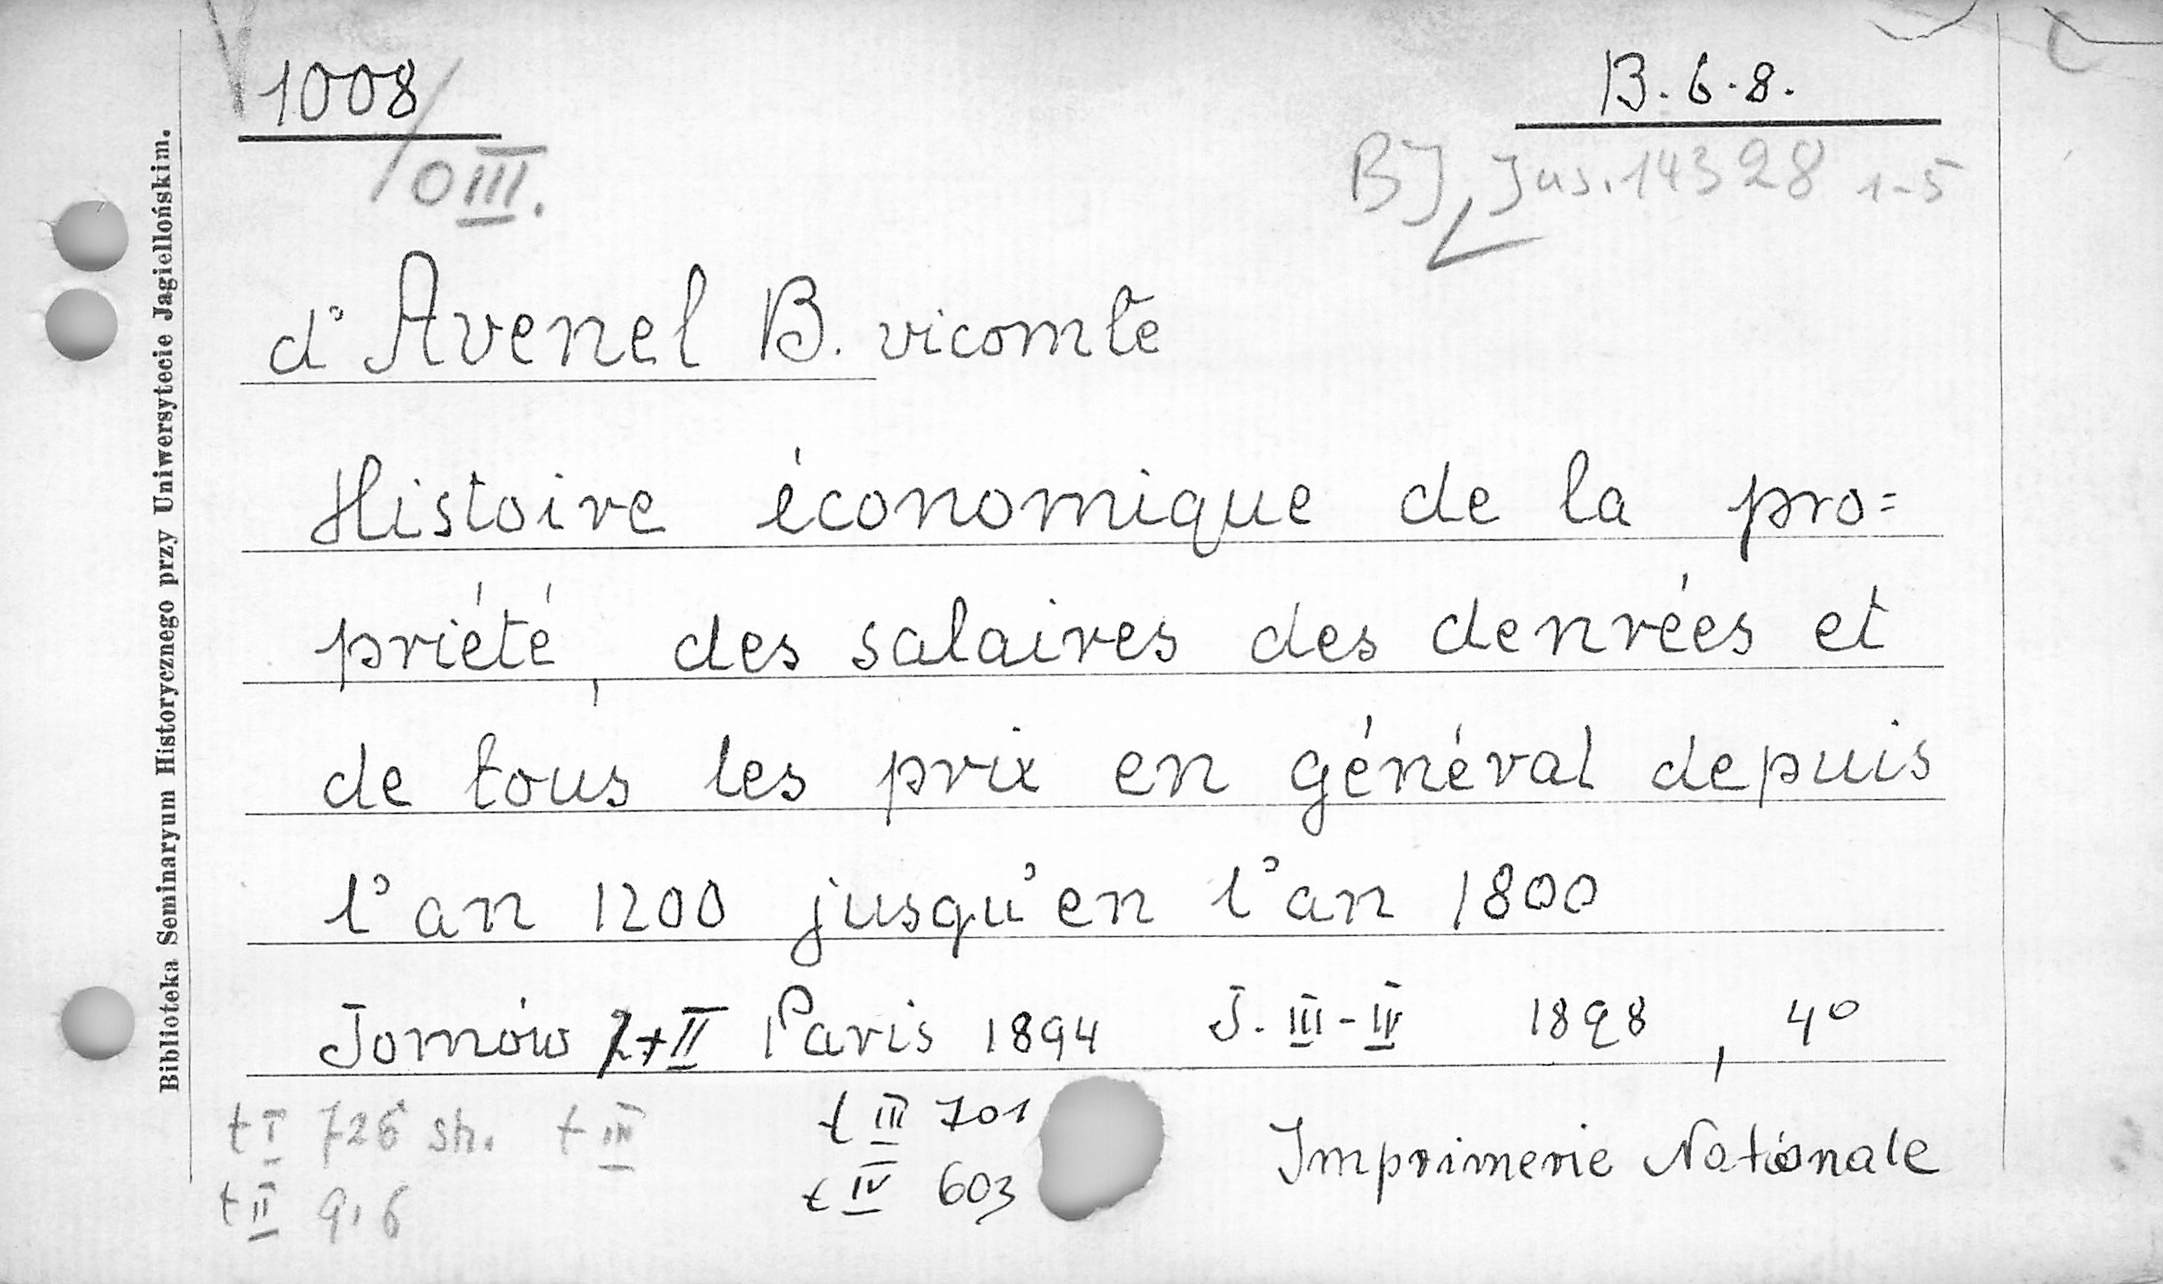 1008
/O III.
B. 6. 8.
BJ, Jus. 14328 1-5
d'Avenel B. vicomte
Histoire économique de la pro=
priété, des salaires des denrées et
de tous les prix en général depuis
l'an 1200 jusqu'en l'an 1800
Tomów I+II Paris 1894 T. III-IV 1898, 4º
t I 726 str. t III
t III 701
t II 916
t IV 603
Imprimerie Nationale
Biblioteka Seminaryum Historycznego przy Uniwersytecie Jagiellońskim.